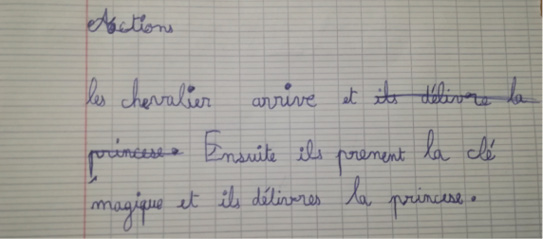 Actions
les chevalier arrive et ils délivre la
princese. Ensuite ils prenent la clé
magique et ils délivres la princese.